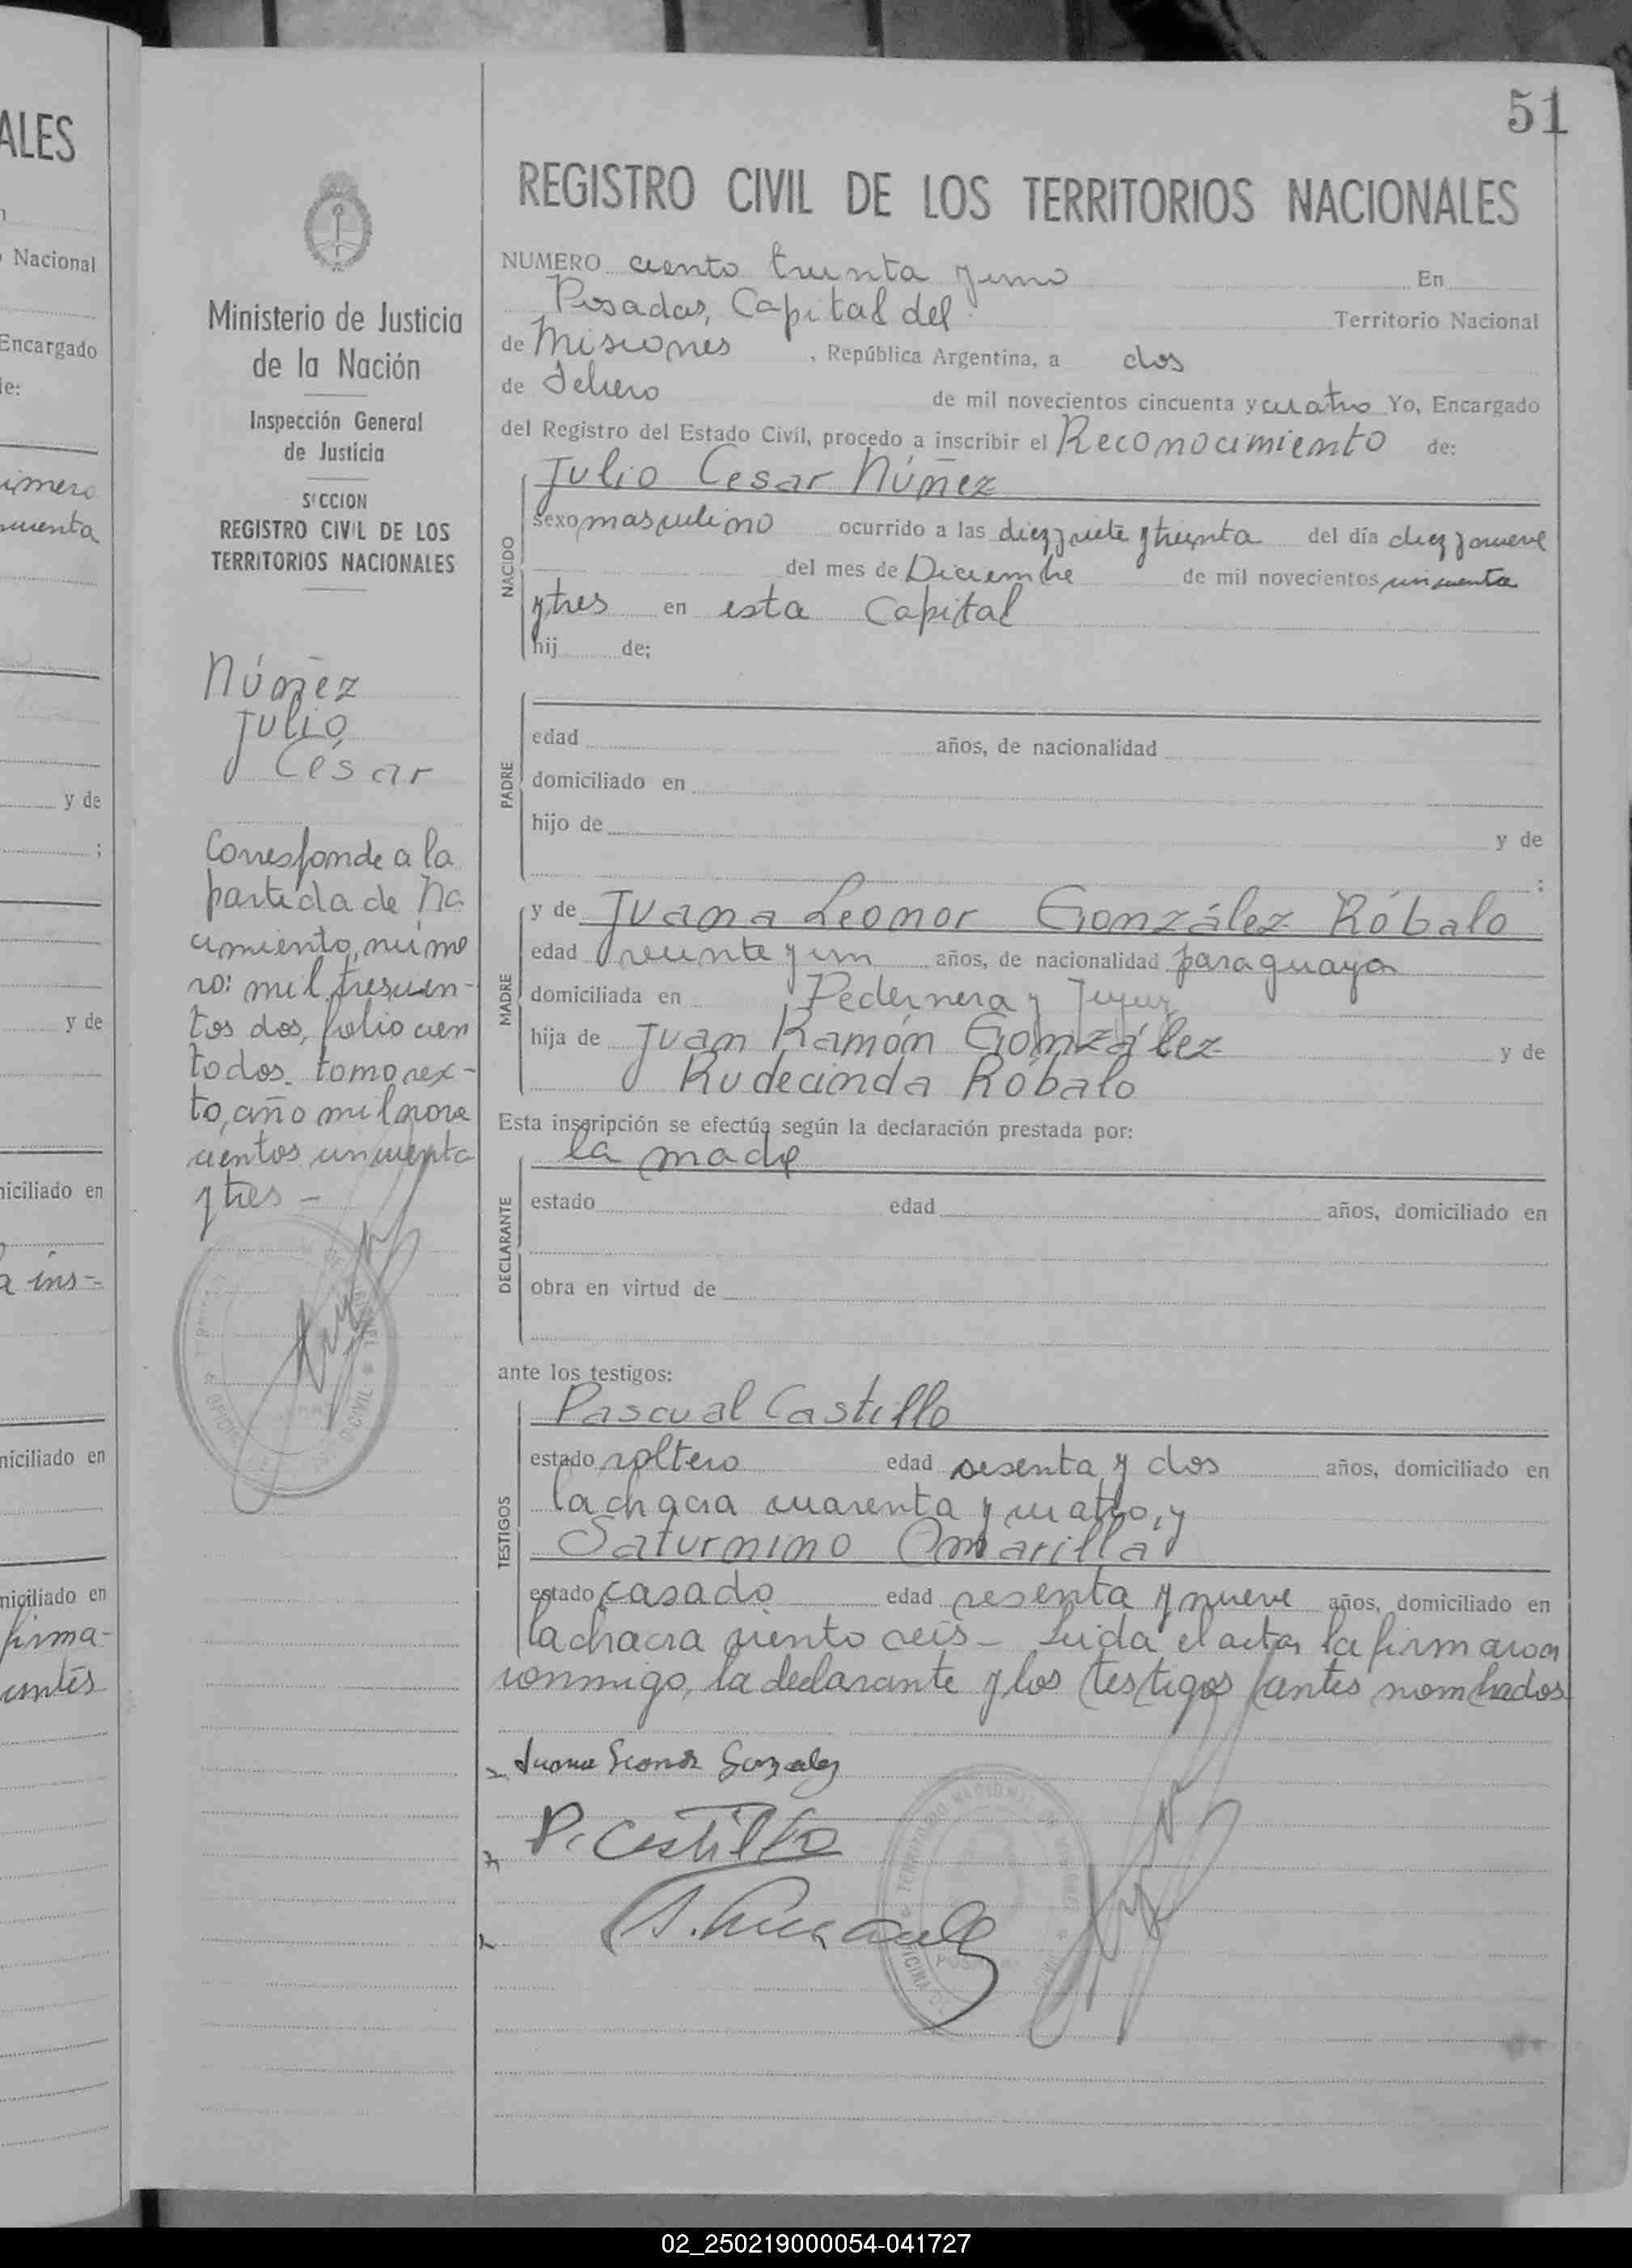 ALES
Nacional
Encargado
de:
cuenta
y de
;
y de
niciliado en
a ins-
niciliado en
niciliado en
firma-
51
Ministerio de Justicia
de la Nación
Inspección General
de Justicia
SECCION
REGISTRO CIVIL DE LOS
TERRITORIOS NACIONALES
Núñez
Julio
César
Corresponde a la
partida de Na
cimiento, núme
ro: mil trescien-
tos dos, folio cien
to dos. tomo sex-
to, año mil nove
cientos cincuenta
y tres -
REGISTRO CIVIL DE LOS TERRITORIOS NACIONALES
NUMERO ciento treinta y uno En
Posadas, Capital del Territorio Nacional
de Misiones , República Argentina, a dos
de Febrero de mil novecientos cincuenta y cuatro Yo, Encargado
del Registro del Estado Civil, procedo a inscribir el Reconocimiento de:
Julio Cesar Núñez
NACIDO
sexo masculino ocurrido a las diez y siete y treinta del día diez y nueve
del mes de Diciembre de mil novecientos cincuenta
y tres en esta Capital
hij de;
PADRE
edad años, de nacionalidad
domiciliado en
hijo de y de
:
MADRE
y de Juana Leonor González Róbalo
edad veinte y un años, de nacionalidad paraguaya
domiciliada en Pedernera y Jujuy
hija de Juan Ramón González y de
Rudecinda Róbalo
Esta inscripción se efectúa según la declaración prestada por:
la madre
DECLARANTE
estado edad años, domiciliado en
obra en virtud de
ante los testigos:
Pascual Castillo
TESTIGOS
estado soltero edad sesenta y dos años, domiciliado en
la chacra cuarenta y cuatro, y
Saturnino Amarilla
estado casado edad sesenta y nueve años, domiciliado en
la chacra ciento seis - Leida el acta, la firmaron
conmigo, la declarante y los testigos antes nombrados
Juana Leonor Gonzalez
P. Castillo
02_250219000054-041727